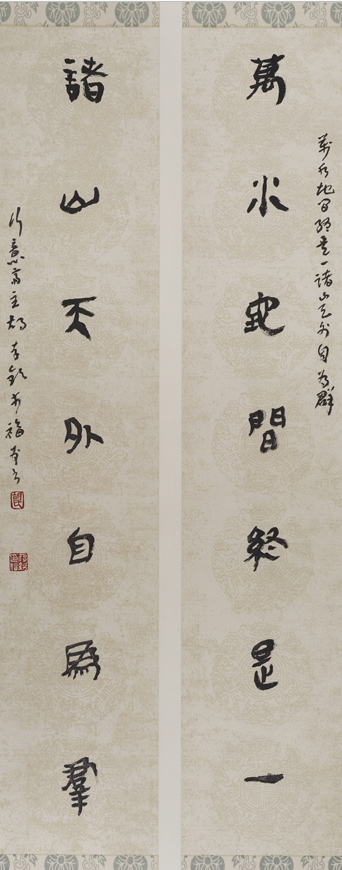 萬水地間終是一諸山天外自為群
萬水地間終是一
諸山天外自為羣
齋主